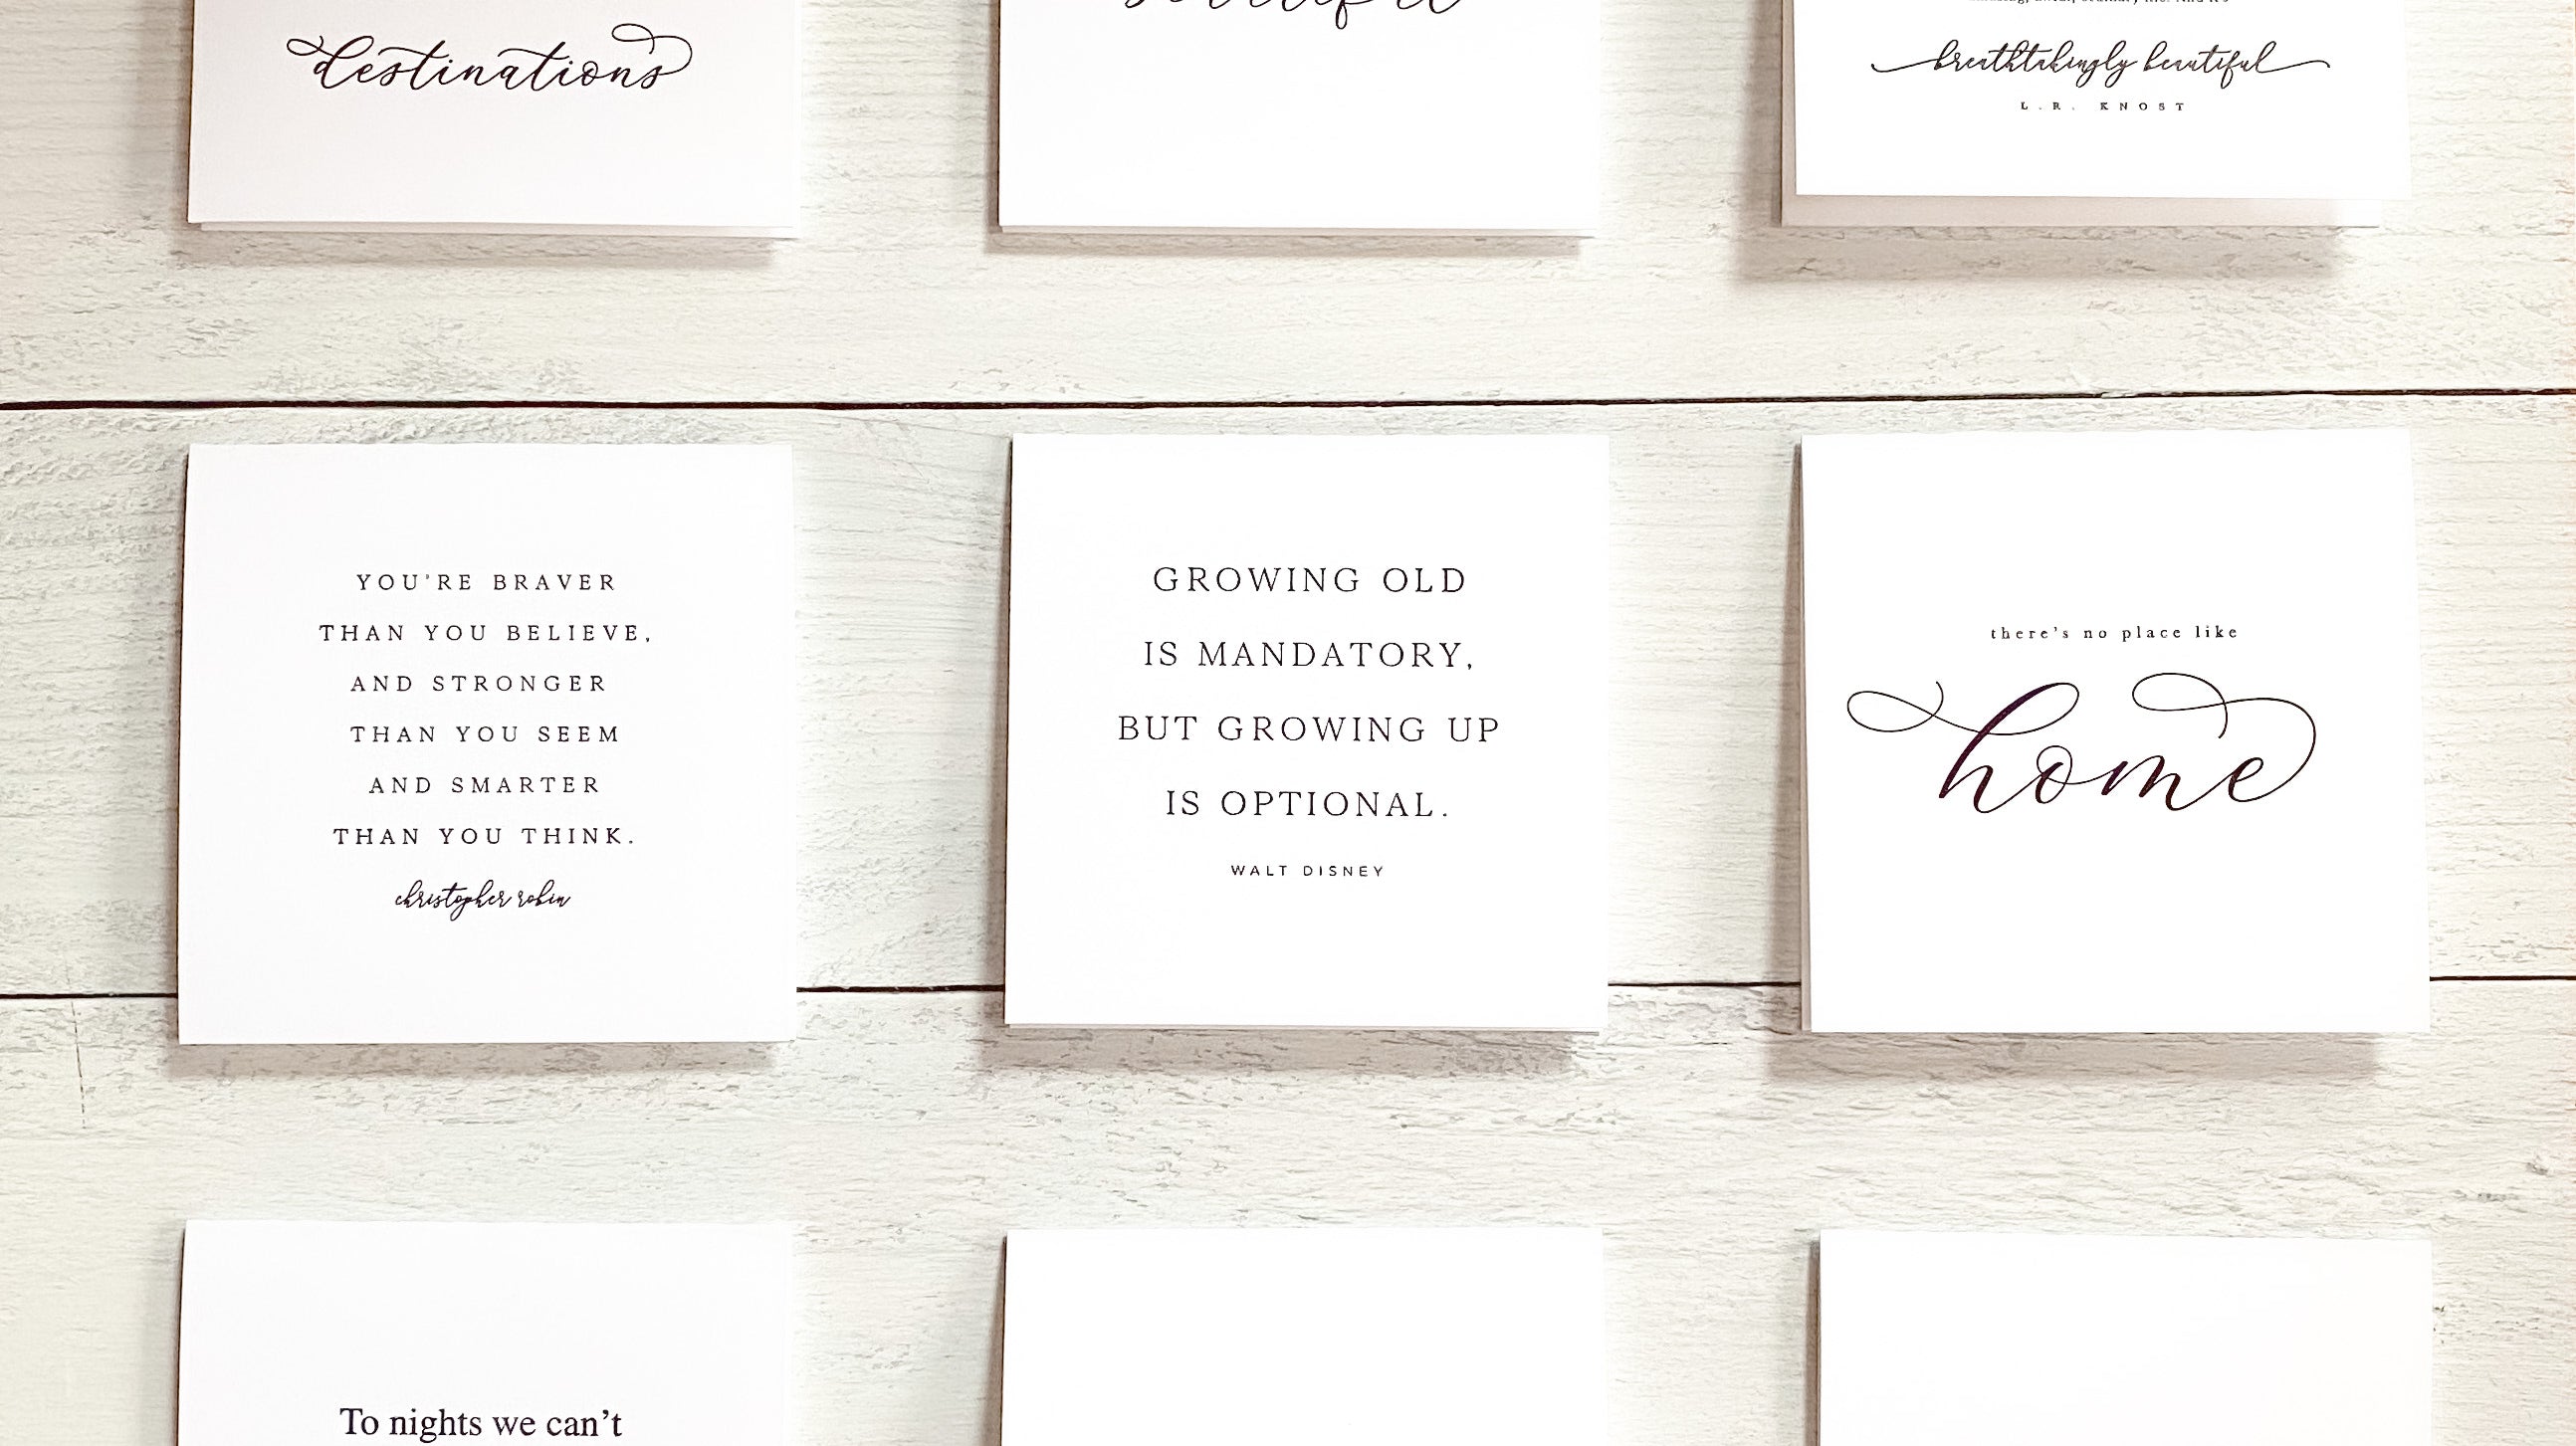 destinations
breathtakingly beautiful
L.R. KNOST
YOU'RE BRAVER
THAN YOU BELIEVE,
AND STRONGER
THAN YOU SEEM
AND SMARTER
THAN YOU THINK.
christopher robin
GROWING OLD
IS MANDATORY,
BUT GROWING UP
IS OPTIONAL.
WALT DISNEY
there's no place like
home
To nights we can't